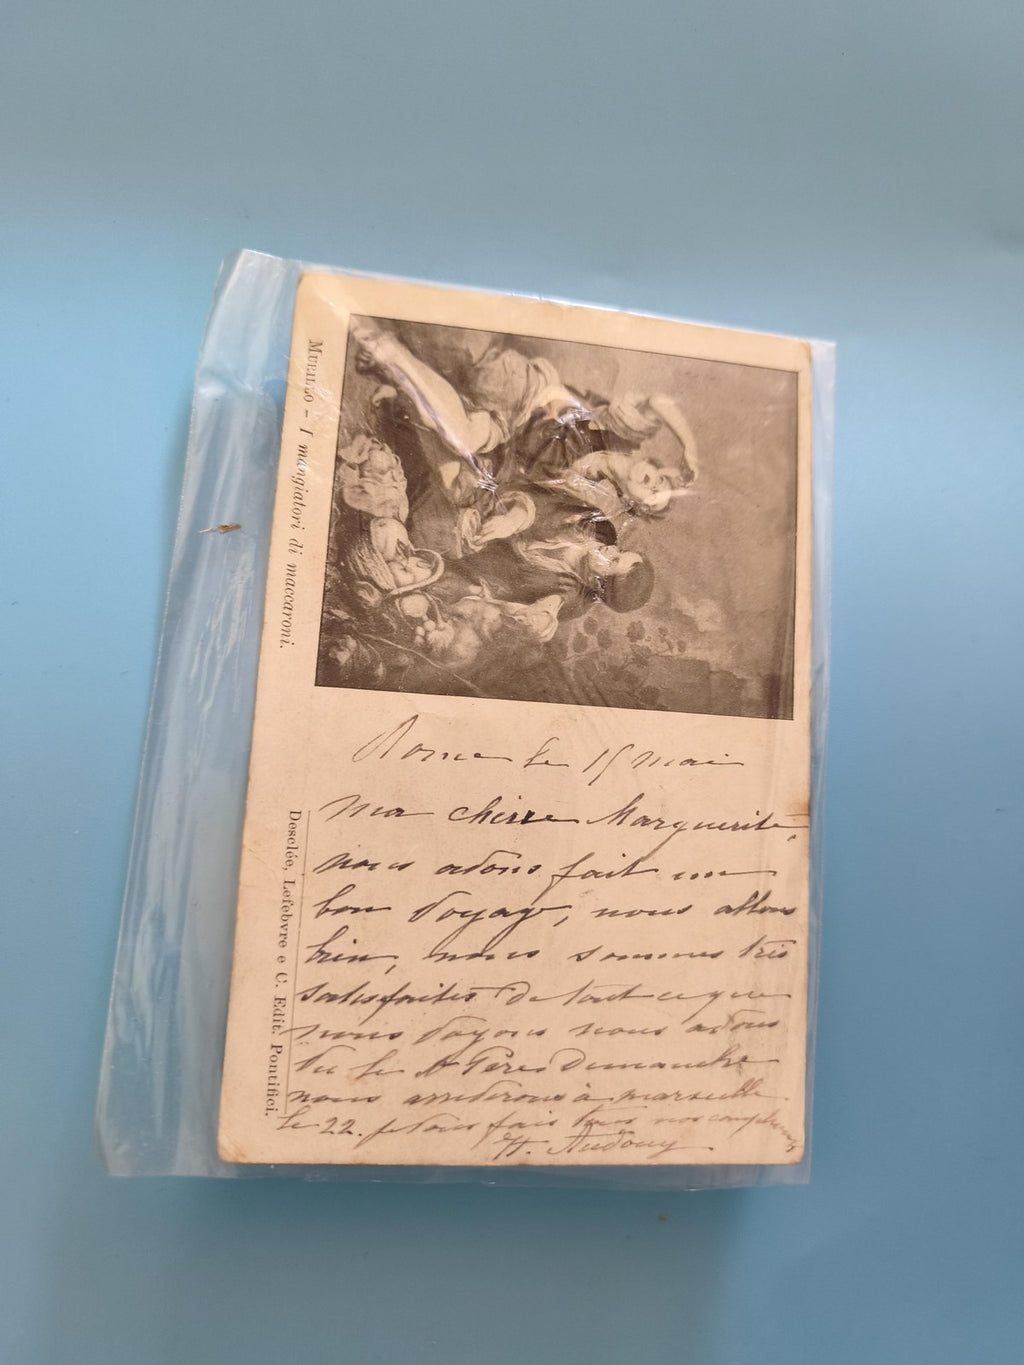 MURILLO - I mangiatori di maccaroni.
Rome le 15 mai
Ma chère Marguerite,
nous avons fait un
bon voyage, nous allons
bien, nous sommes très
satisfaites de tout ce que
nous voyons nous avons
vu le St Père Dimanche
nous arriverons à marseille
le 22. je vous fais tous nos compliments
H. Audouy
Desclée, Lefebvre e C. Edit. Pontifici.